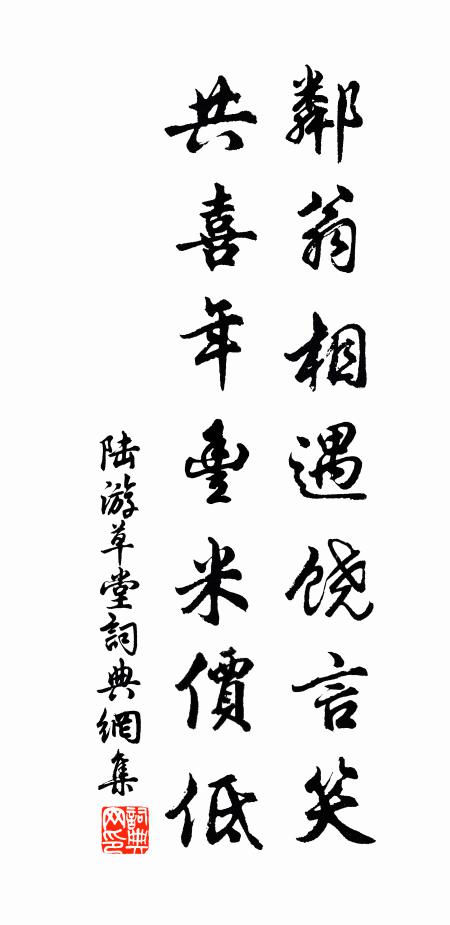 鄰翁相遇饶言笑
共喜年豐米價低
陆游草堂詞典網集
詞典网印